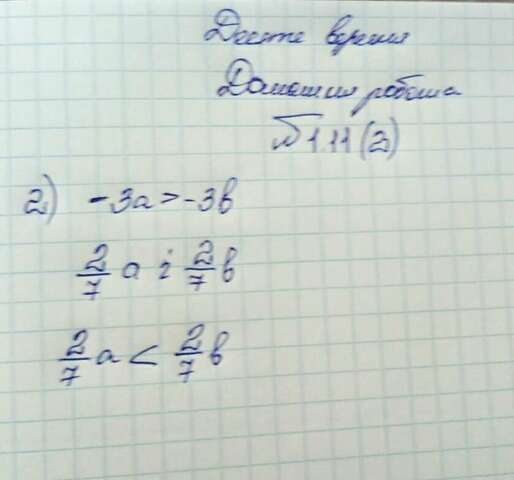 Десяте вересня
Домашня робота
№1.11(2)
2) -3a > -3b
2/7 a і 2/7 b
2/7 a < 2/7 b